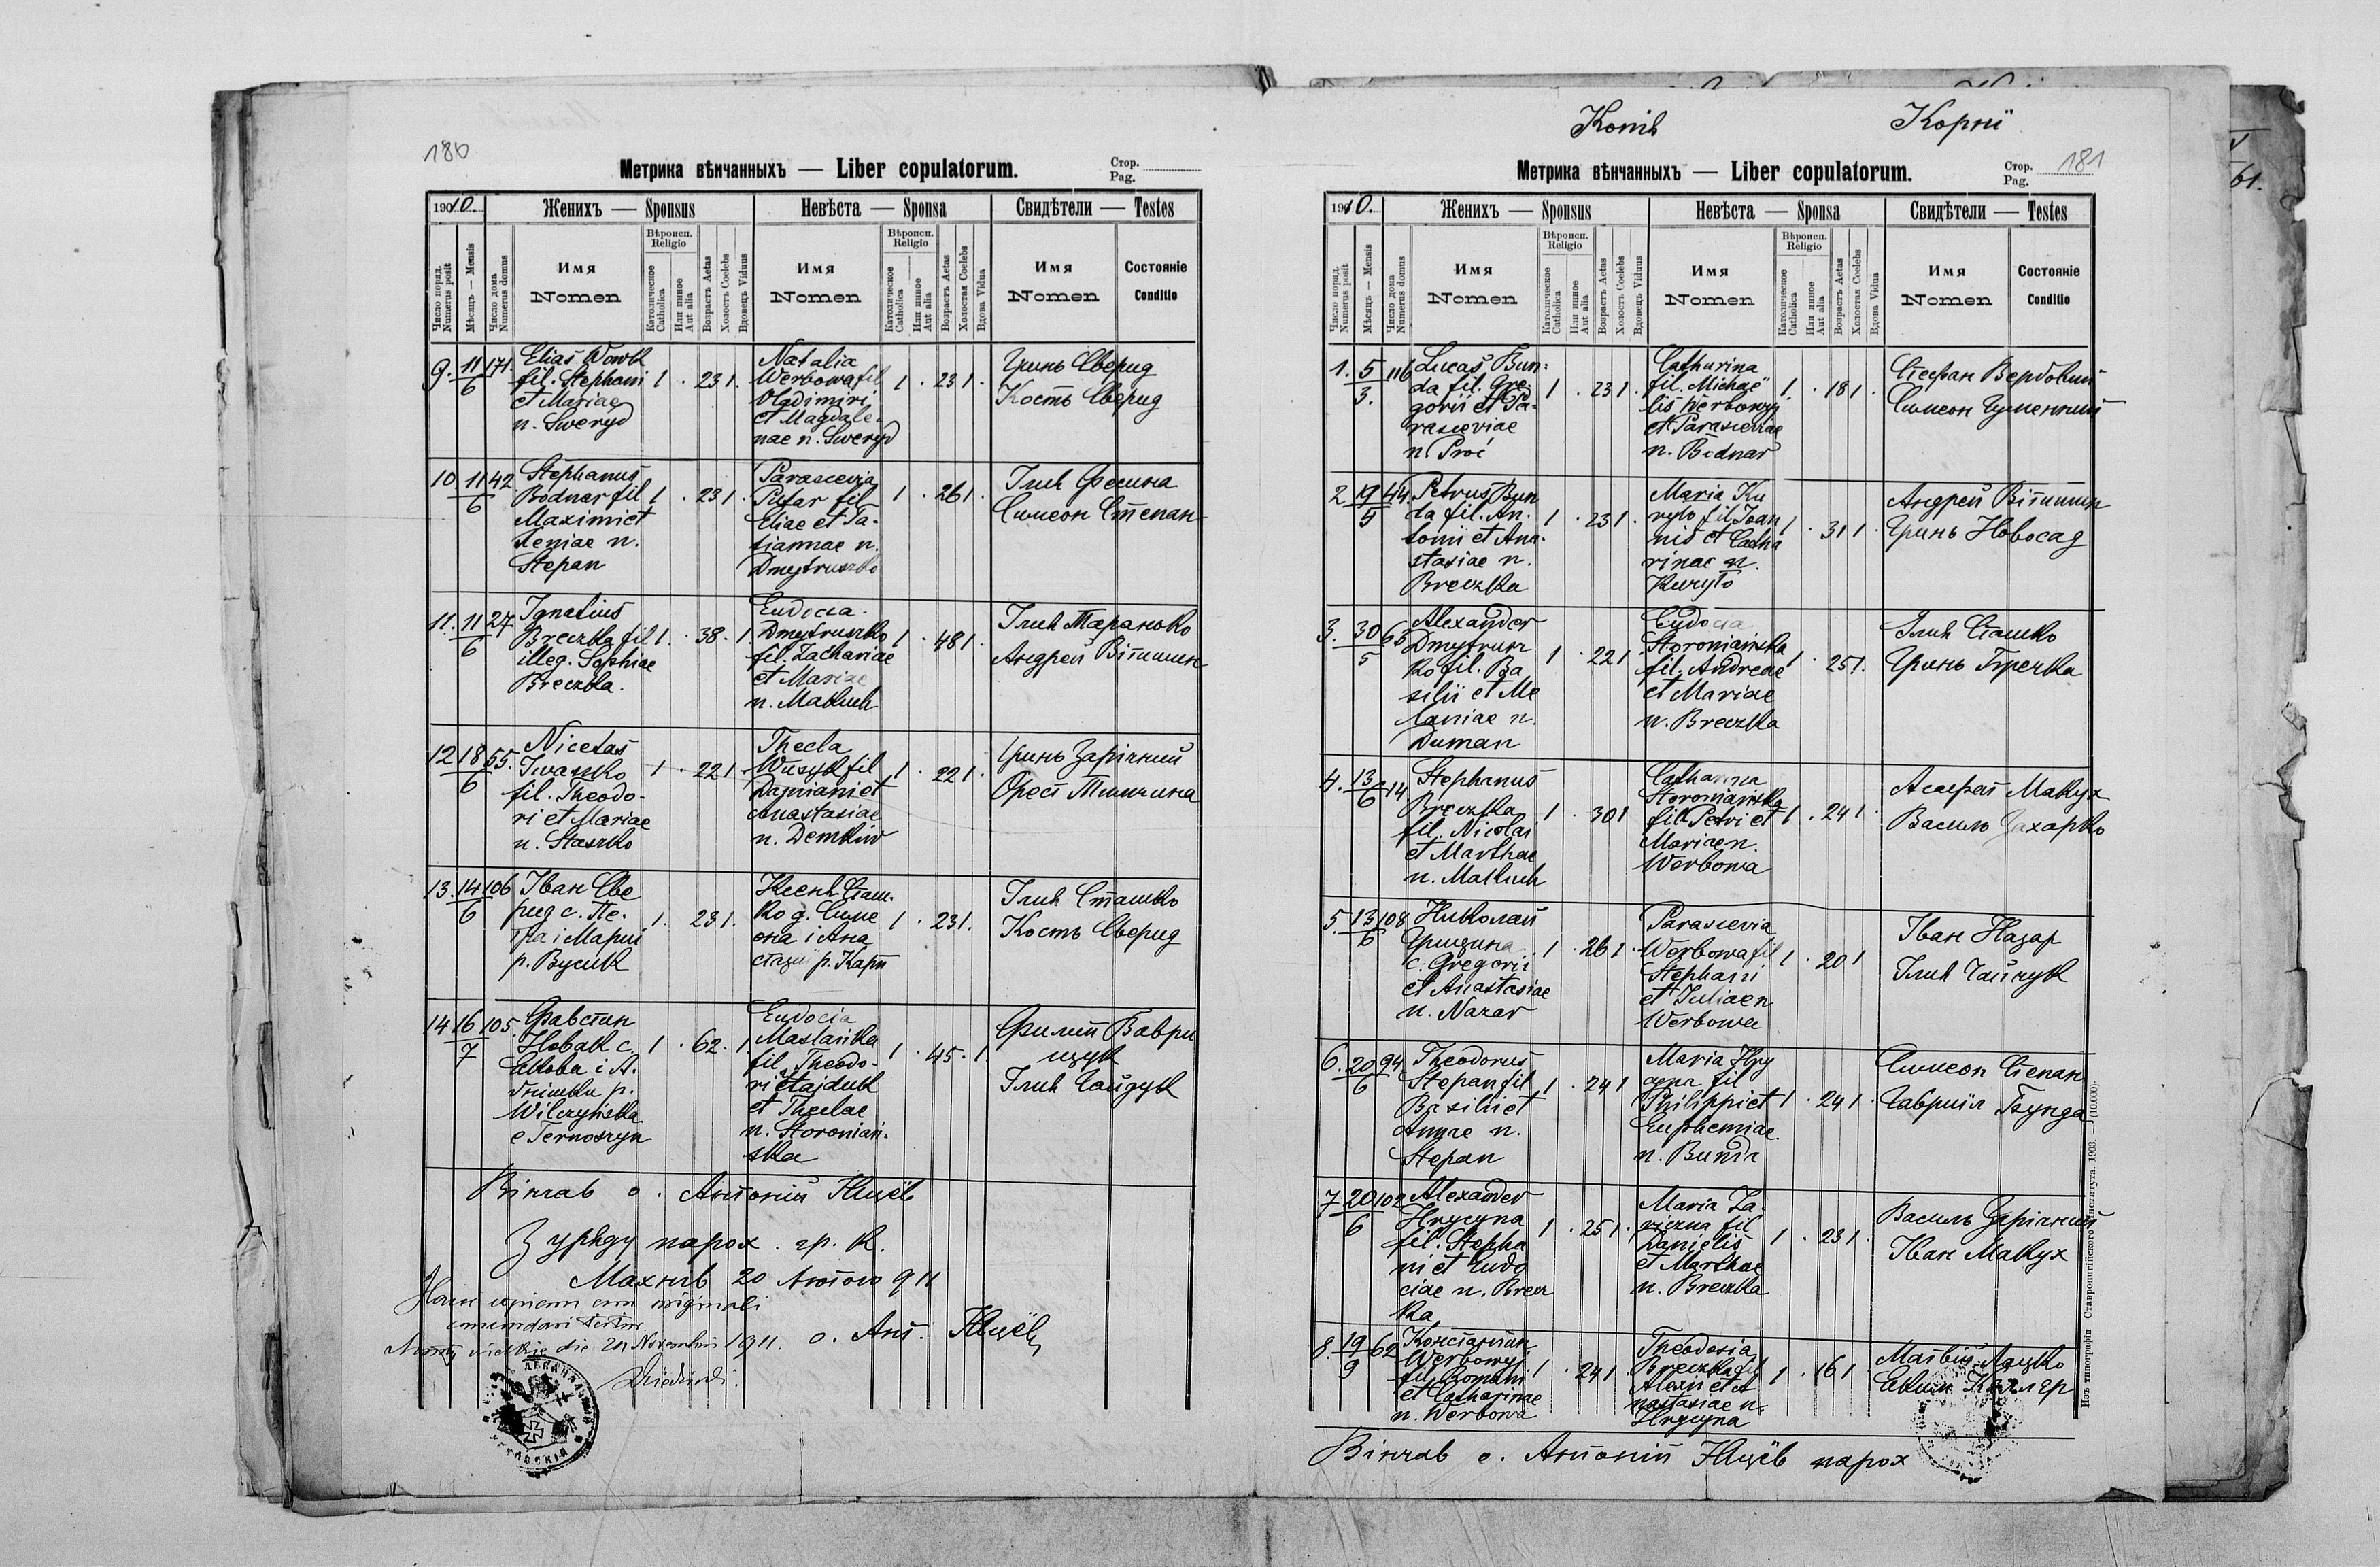 180
Метрика вѣнчанныхъ — Liber copulatorum.
Стор.
Pag.
1910.
Женихъ — Sponsus
Невѣста — Sponsa
Свидѣтели — Testes
Число поряд.
Numerus posit
Мѣсяцъ — Mensis
Число дома
Numerus domus
Имя
Nomen
Вѣроисп.
Religio
Католическое
Catholica
Или иное
Aut alia
Возрастъ Aetas
Холостъ Coelebs
Вдовецъ Viduus
Имя
Nomen
Вѣроисп.
Religio
Католическое
Catholica
Или иное
Aut alia
Возрастъ Aetas
Холостая Coelebs
Вдова Vidua
Имя
Nomen
Состояніе
Conditio
9. 11/6 171.
Elias Wowk
fil. Stephani
et Mariae
n. Sweryd
1 . 23 1 .
Natalia
Werbowa fil
Vladimiri
et Magdale-
nae n. Sweryd
1 . 23 1 .
Гринь Сверид
Кость Сверид
10 11/6 42
Stephanus
Bodnar fil
Maximi et
Xeniae n.
Stepan
1 . 23 1 .
Parascevia
Pufar fil
Eliae et Ta-
tiannae n.
Dmytruszko
1 . 26 1 .
Ілия Фесина
Симеон Степан
11. 11/6 27
Ignatius
Breczka fil
illeg. Sophiae
Breczka.
1 . 38 . 1
Eudocia
Dmytruszko
fil. Zachariae
et Mariae
n. Makuch
1 . 48 1 .
Ілия Таранько
Андрей Вітишин
12 18/6 55.
Nicetas
Iwaszko
fil. Theodo-
ri et Mariae
n. Staszko
1 . 22 1 .
Thecla
Wusyk fil
Damiani et
Anastasiae
n. Demkiw
1 . 22 1 .
Гринь Зарічний
Орест Тимчина
13. 14/6 106
Іван Све
рид с. Пе-
тра і Мариї
р. Вусик
1 . 23 1 .
Ксеня Сташ-
ко д. Симе
она і Ана
стазиї р. Карп
1 . 23 1 .
Ілия Сташко
Кость Сверид
14 16/7 105.
Фавстин
Новак с.
Якова і А.
Wilczyńska
e Ternoszyn
1 . 62 . 1
Eudocia
Maslanka
fil. Theodo-
ri Hajduk
et Theclae
n. Storoniań-
ska
1 . 45 . 1
Филип Ваври
щук
Ілия Гайдук
Вінчав о. Антоній Кицѣв
З уряду парох. гр. к.
Махнів 20 лютого 911
о. Ант. Кицѣв
Hanc copiam cum originali
die 20 Novembris 1911.
Конів
Корнї
Метрика вѣнчанныхъ — Liber copulatorum.
Стор.
Pag.
181
1910.
Женихъ — Sponsus
Невѣста — Sponsa
Свидѣтели — Testes
Число поряд.
Numerus posit
Мѣсяцъ — Mensis
Число дома
Numerus domus
Имя
Nomen
Вѣроисп.
Religio
Католическое
Catholica
Или иное
Aut alia
Возрастъ Aetas
Холостъ Coelebs
Вдовецъ Viduus
Имя
Nomen
Вѣроисп.
Religio
Католическое
Catholica
Или иное
Aut alia
Возрастъ Aetas
Холостая Coelebs
Вдова Vidua
Имя
Nomen
Состояніе
Conditio
1. 5/3. 116
Lucas Bun-
da fil. Gre-
gorii et Pa-
rasceviae
n. Proć
1 . 23 1 .
Catharina
fil. Michaë-
lis Werbowyj
et Parasceviae
n. Bodnar
1 . 18 1 .
Стефан Вербовий
Симеон Гуменний
2 19/5 44.
Petrus Bun
da fil. An-
tonii et Ana-
stasiae n.
Breczka
1 . 23 1 .
Maria Ku
ryło fil. Joan
nis et Catha
rinae n.
Kuryło
1 . 31 1 .
Андрей Вітишин
Гринь Новосад
3. 30/5 63
Alexander
Dmytrusz
ko fil. Ba
silii et Me
laniae n.
Duman
1 . 22 1 .
Eudocia
Storoniańska
fil. Andreae
et Mariae
n. Breczka
1 . 25 1 .
Ілия Сташко
Гринь Бречка
4. 13/6 14
Stephanus
Breczka
fil. Nicolai
et Marthae
n. Makuch
1 . 30 1
Catharina
Storoniańska
fil. Petri et
Mariae n.
Werbowa
1 . 24 1 .
Алексей Макух
Василь Захарко
5. 13/6 108
Николай
Грицина
с. Gregorii
et Anastasiae
n. Nazar
1 . 26 1 .
Parascevia
Werbowa fil
Stephani
et Juliae n
Werbowa
1 . 20 1
Іван Назар
Ілия Гайдук
6. 20/6 94.
Theodorus
Stepan fil
Basilii et
Annae n.
Stepan
1 . 24 1
Maria Hry
cyna fil
Philippi et
Euphemiae
n. Bunda
1 . 24 1 .
Симеон Степан
Гавриїл Бунда
7 20/6 102
Alexander
Hrycyna
fil. Stepha
ni et Eudo
ciae n. Brecz
ka
1 . 25 1 .
Maria Za-
riczna fil
Danielis
et Marthae
n. Breczka
1 . 23 1 .
Василь Зарічний
Іван Макух
8. 19/9 62
Константин
Werbowyj
fil. Romani
et Catharinae
n. Werbowa
1 . 24 1
Theodosia
Breczka fil
Alexii et A
nastasiae n.
Hrycyna
1 . 16 1
Матвій Лацко
Вінчав о. Антоній Кицѣв парох
Изъ типографіи Ставропигійского Института. 1903. — (10.000).